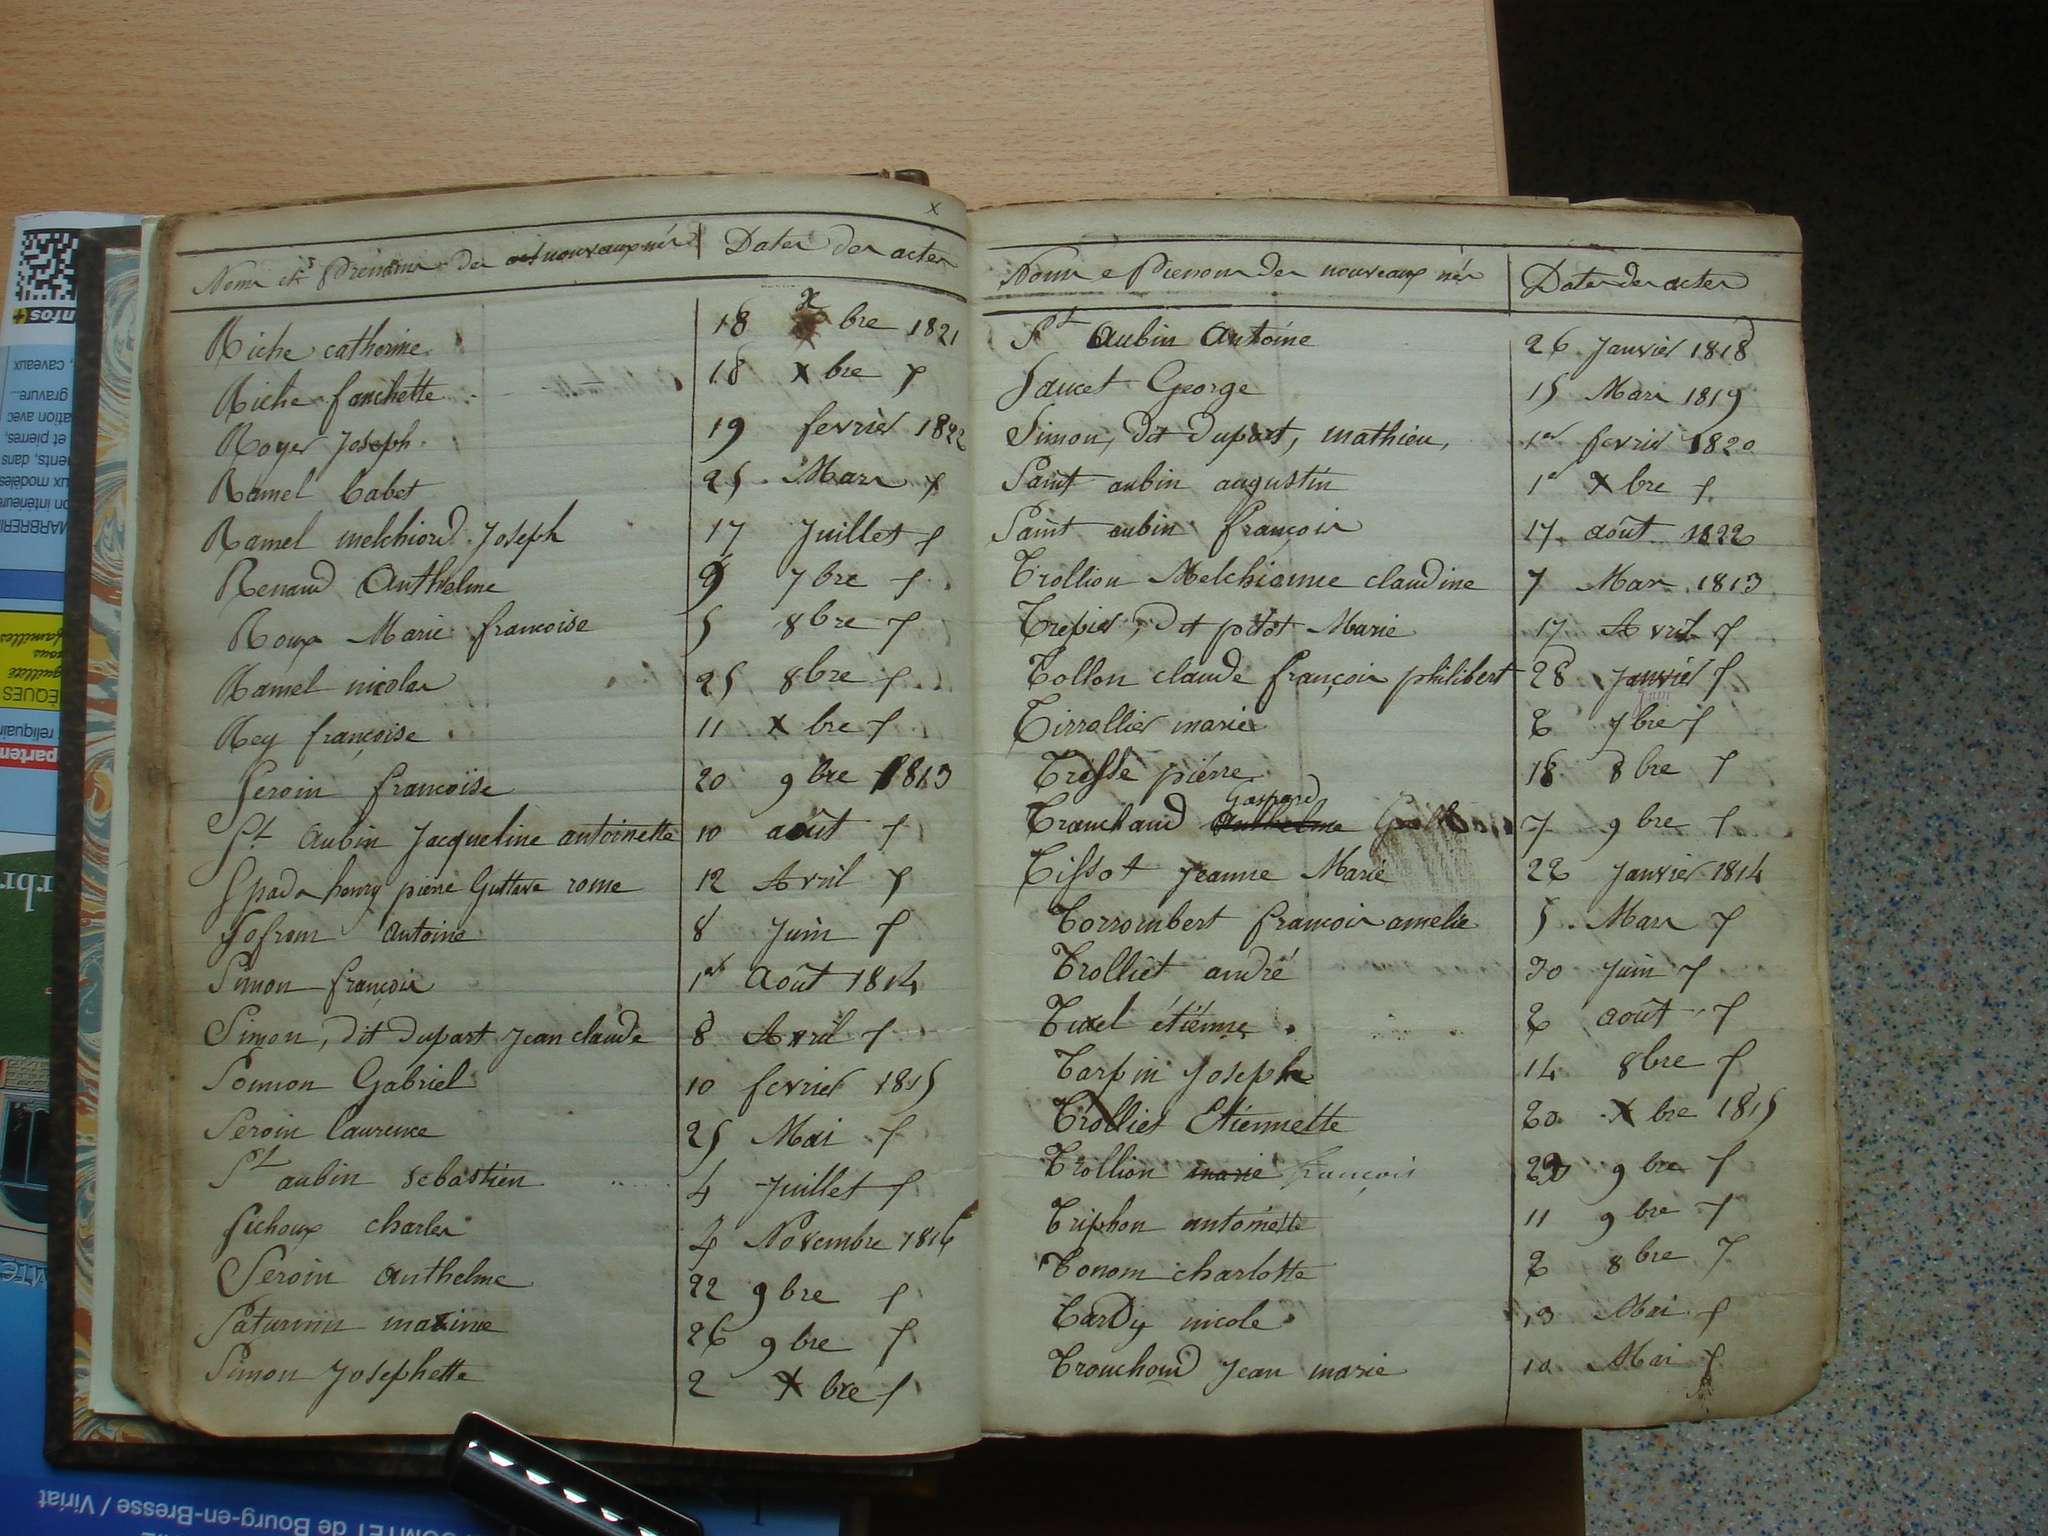 x
Noms et Prenoms des nouveaux nés Dates des actes
Riche catherine 18 x bre 1821
Riche fanchette 18 x bre f
Royer Joseph 19 fevrier 1822
Ramel babet 25 Mars f
Ramel melchiord Joseph 17 Juillet f
Renaud Anthelme 9 7 bre f
Roux Marie francoise 5 8 bre f
Ramel nicolas 25 8 bre f
Rey françoise 11 x bre f
Seroin francoise 20 9 bre 1813
St Aubin Jacqueline antoinette 10 août f
Spada henry pierre Gustave rome 12 Avril f
antoine 8 Juin f
Simon françois 1er Août 1814
Simon, dit Dupart Jean claude 8 Avril f
Gabriel 10 fevrier 1815
Seroin laurence 25 Mai f
St aubin sebastien 4 Juillet f
Sichoux charles Novembre 1816
Seroin anthelme 22 9 bre f
Saturnin maxime 26 9 bre f
Simon Josephette 2 x bre f
Noms e Prenoms des nouveaux nés Dates des actes
St Aubin Antoine 26 Janvier 1818
Saucet George 15 Mars 1819
Simon, dit Dupart, mathieu, 1er fevrier 1820
Saint aubin augustin 1er x bre f
Saint aubin françois 17 août 1822
Trollion Melchionne claudine 7 Mars 1813
Trepier, dit pitot Marie 17 Avril f
Tollon claude françois philibert 28 Janvier f
Juin
Tirrollier marie 2 7 bre f
Trosse pierre 18 8 bre f
Gaspard
Tranchand Anthelme 7 9 bre f
Tissot jeanne Marie 22 Janvier 1814
Torrombert françois amelie 5 Mars f
Trolliet andré 30 Juin f
Tuxel étienne 2 août f
Tarpin Joseph 14 8 bre f
Trolliet Etiennette 20 x bre 1815
Trollion marie françois 9 bre f
Triphon antoinette 11 9 bre f
Tonom charlotte 2 8 bre f
Tardy nicole 13 Mai f
Trouchoud Jean marie 10 Mai f
infos+
caveaux
gravure...
et pierres,
dans
familles
vous
de Bourg-en-Bresse / Viriat